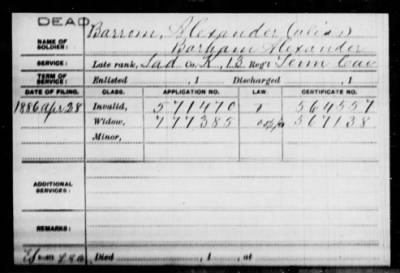 DEAD
NAME OF SOLDIER: Barrom, Alexander (alias)
Barham Alexander
SERVICE: Late rank, Sad Co. K, 13 Reg't Tenn Cav
TERM OF SERVICE: Enlisted , 1 Discharged , 1
DATE OF FILING. CLASS. APPLICATION NO. LAW. CERTIFICATE NO.
1886 Apr 28 Invalid, 571470 564557
Widow, 777385 567138
Minor,
ADDITIONAL SERVICES:
REMARKS:
Died , 1 , at